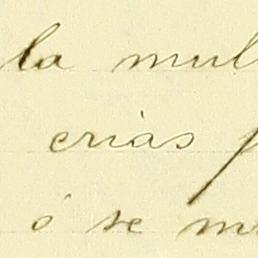 la mul
crias p
ó se m